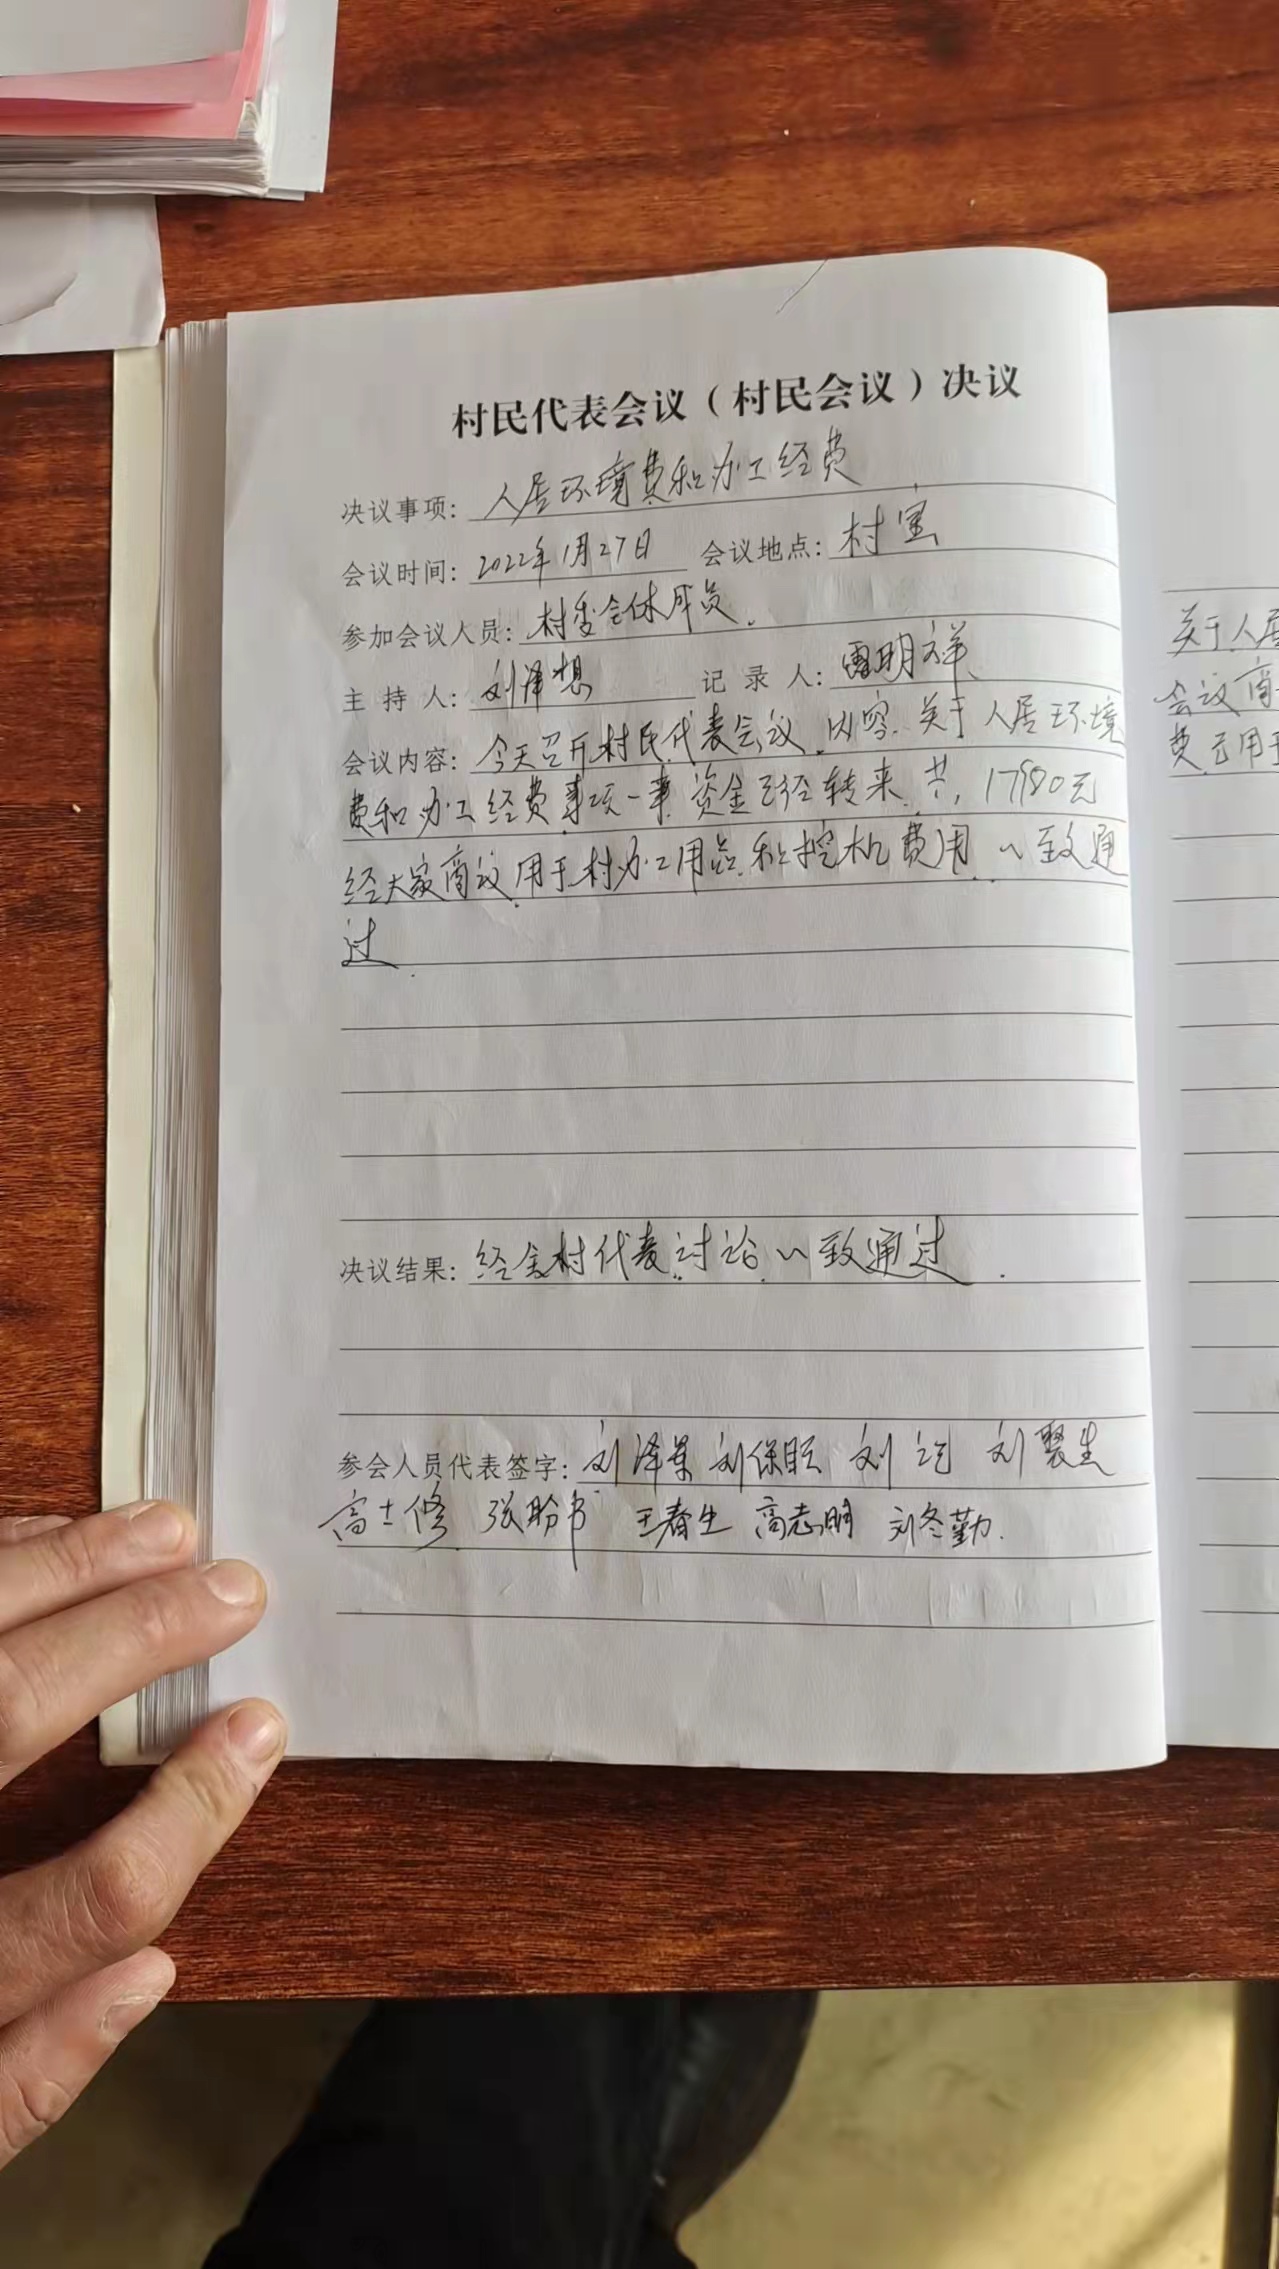 村民代表会议（村民会议）决议
决议事项：人居环境费和办工经费
会议时间：2022年1月27日 会议地点：村室
参加会议人员：村委全体成员.
主 持 人：刘泽想 记 录 人：雷明祥
会议内容：今天召开村民代表会议.内容.关于人居环境
费和办工经费事项一事.资金已经转来.共，17980元
经大家商议.用于村办工用品.和挖机费用.一致通
过.
决议结果：经全村代表讨论.一致通过.
参会人员代表签字：刘泽 刘保 刘 刘聚生
高士修 张盼书 王春生 高志明 刘冬勤.
关于人居
会议商
费已用于